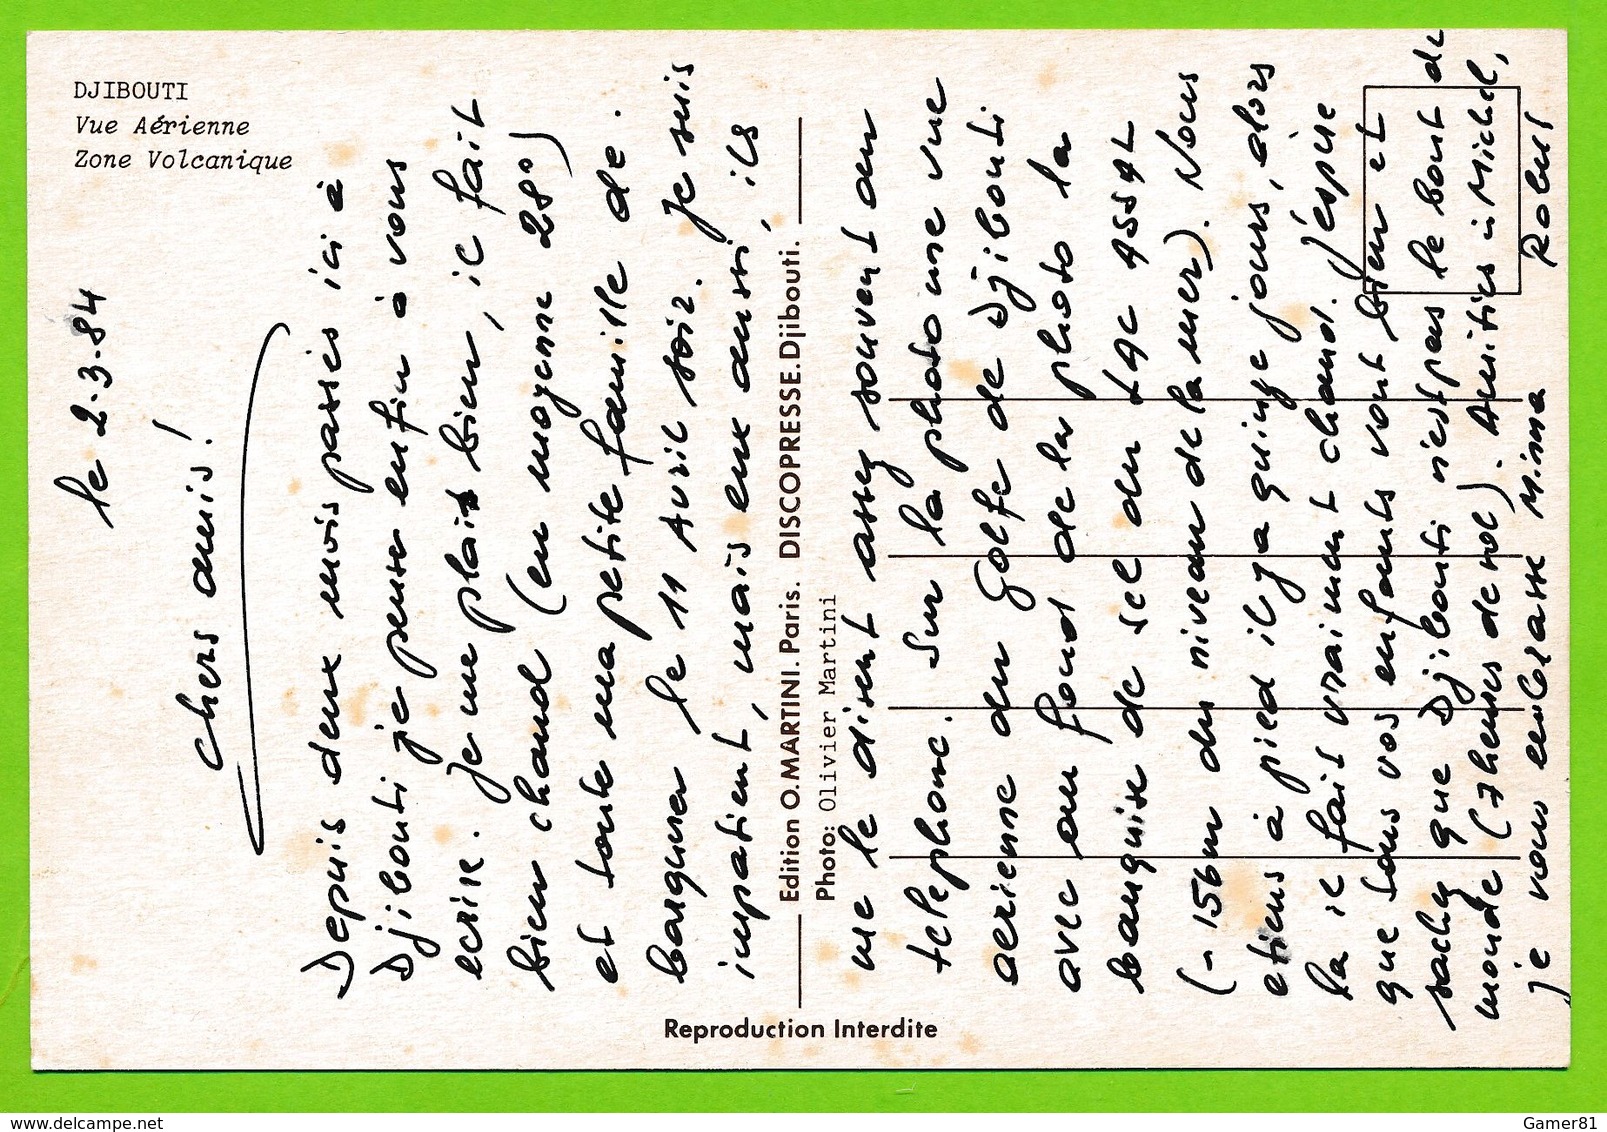 DJIBOUTI
Vue Aérienne
Zone Volcanique
le 2.3.84
Chers amis!
Depuis deux mois passés ici à
Djibouti je pense enfin à vous
ecrire. Je me plais bien, il fait
bien chaud (en moyenne 28°)
et toute ma petite famille de.
barquera le 11 Avril soir. Je suis
impatient, mais eux aussi, ils
Edition O.MARTINI. Paris. DISCOPRESSE.Djibouti.
Photo: Olivier Martini
me le disent assez souvent au
telephone. Sur la photo une vue
aerienne du Golfe de Djibouti
avec au fond de la photo la
banquise de sel du Lac ASSAL
(-156m du niveau de la mer). Nous
etions à pied il y a quinze jours, alors
la il fait vraiment chaud. J'espère
que tous vos enfants vont bien et
sachez que Djibouti n'est pas le bout de
monde (7 heures de vol). Amitiés à Michel,
je vous embrasse Mima Robert
Reproduction Interdite
delcampe.net
Gamer81